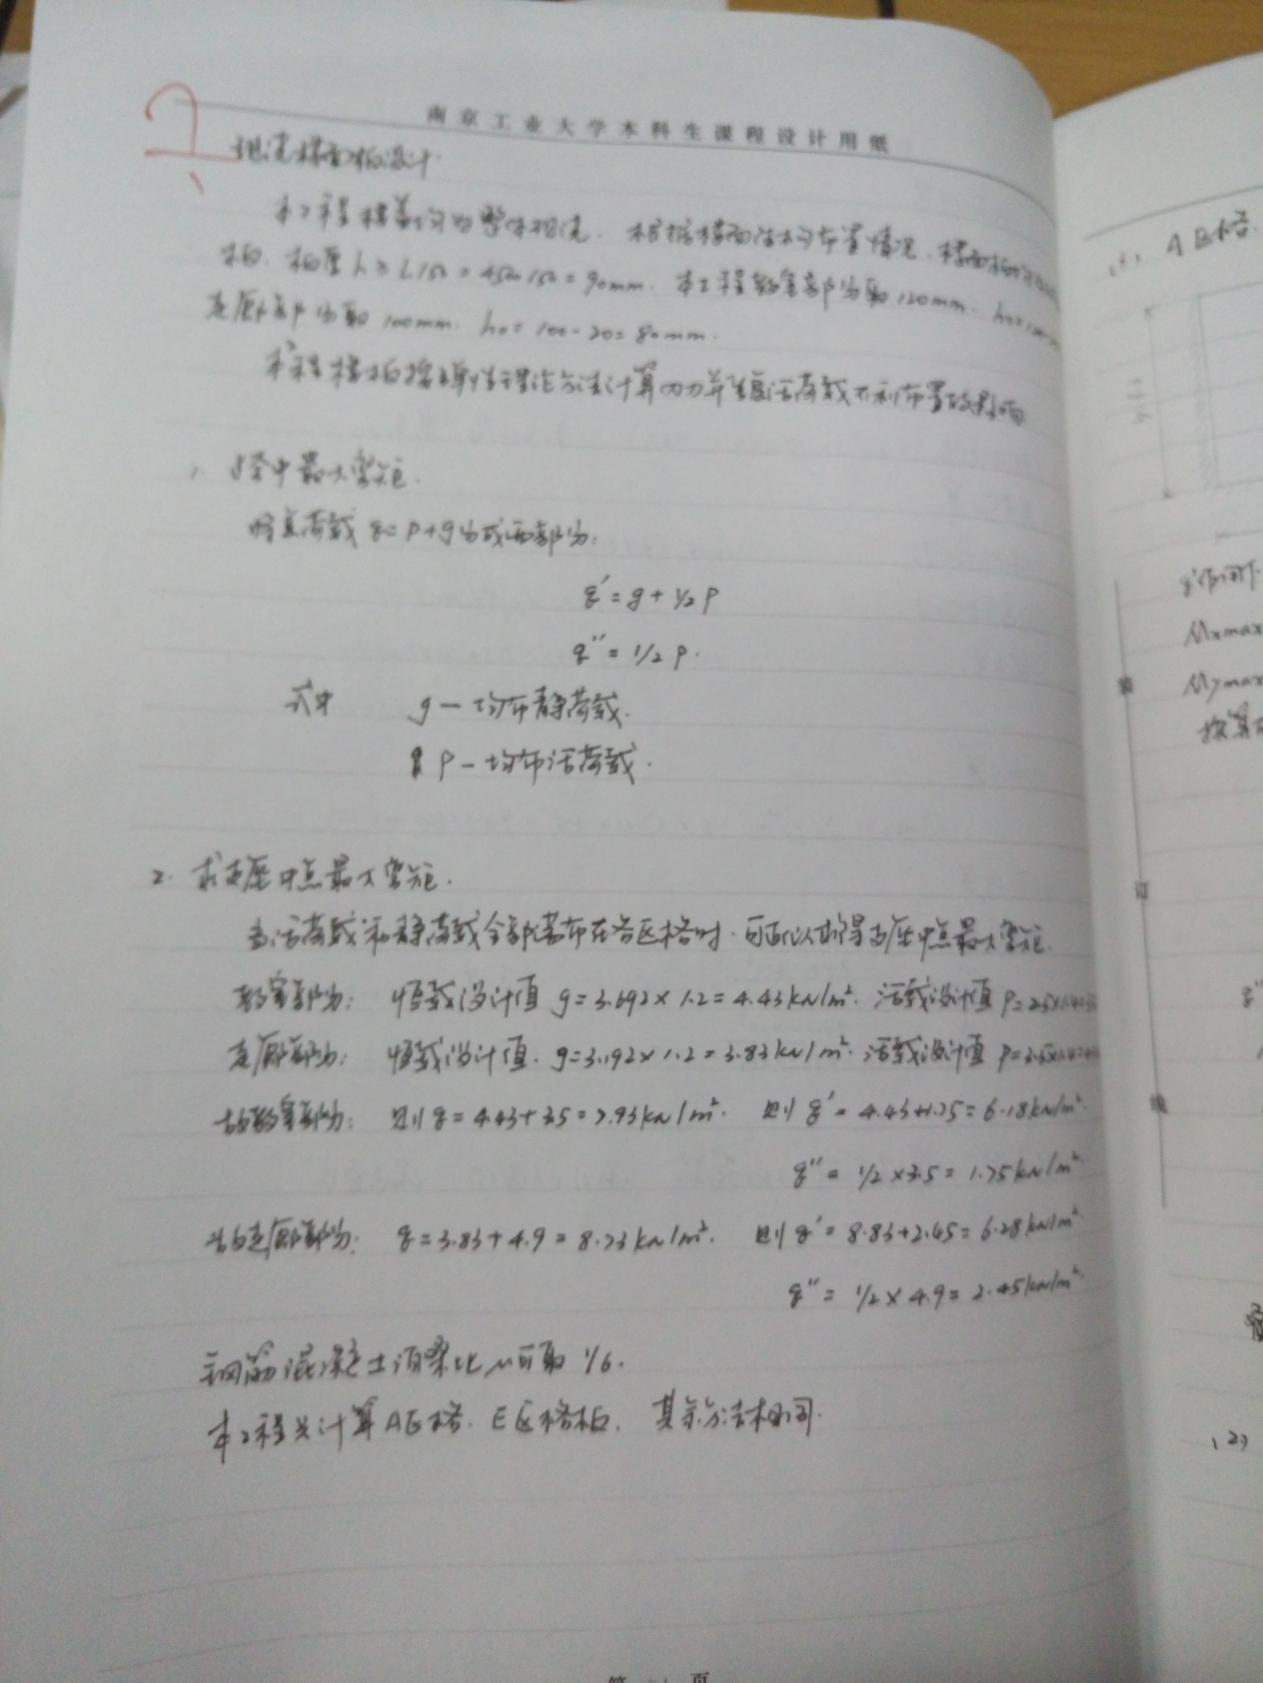 南京工业大学本科生课程设计用纸
现浇楼面板设计
本工程楼盖均为整体现浇. 根据楼面结构布置情况. 楼面板均为
板. 板厚 h ≥ L/50 = 4500/50 = 90mm. 本工程教室部分取 120mm. h0=
走廊部分取 100mm. h0 = 100-20 = 80mm.
本工程楼板按弹性理论方法计算内力并考虑活荷载不利布置的影响
1. 跨中最大弯矩.
将总荷载 q = p+g 分成两部分:
q' = g + 1/2 p
q'' = 1/2 p.
式中 g — 均布静荷载.
p — 均布活荷载.
2. 求支座中点最大弯矩.
当活荷载和静荷载全部满布在各区格时. 可近似求得支座中点最大弯矩.
教室部分: 恒载设计值 g=3.692×1.2=4.43kN/m². 活载设计值 p=2.5×1.4=3.5
走廊部分: 恒载设计值. g=3.192×1.2=3.83kN/m². 活载设计值 p=3.5×1.4=4.9
故教室部分: 则 q=4.43+3.5=7.93kN/m². 则 q'=4.43+1.75=6.18kN/m².
q''= 1/2×3.5=1.75kN/m².
走廊部分: q=3.83+4.9=8.73kN/m². 则 q'=8.83+2.45=6.28kN/m².
q''= 1/2×4.9=2.45kN/m².
钢筋混凝土泊桑比μ可取 1/6.
本工程共计算A区格. E区格板. 其余方法相同.
第 页
(1) A区格.
q'作用下
Mxmax
Mymax
装
订
线
q''
(2)